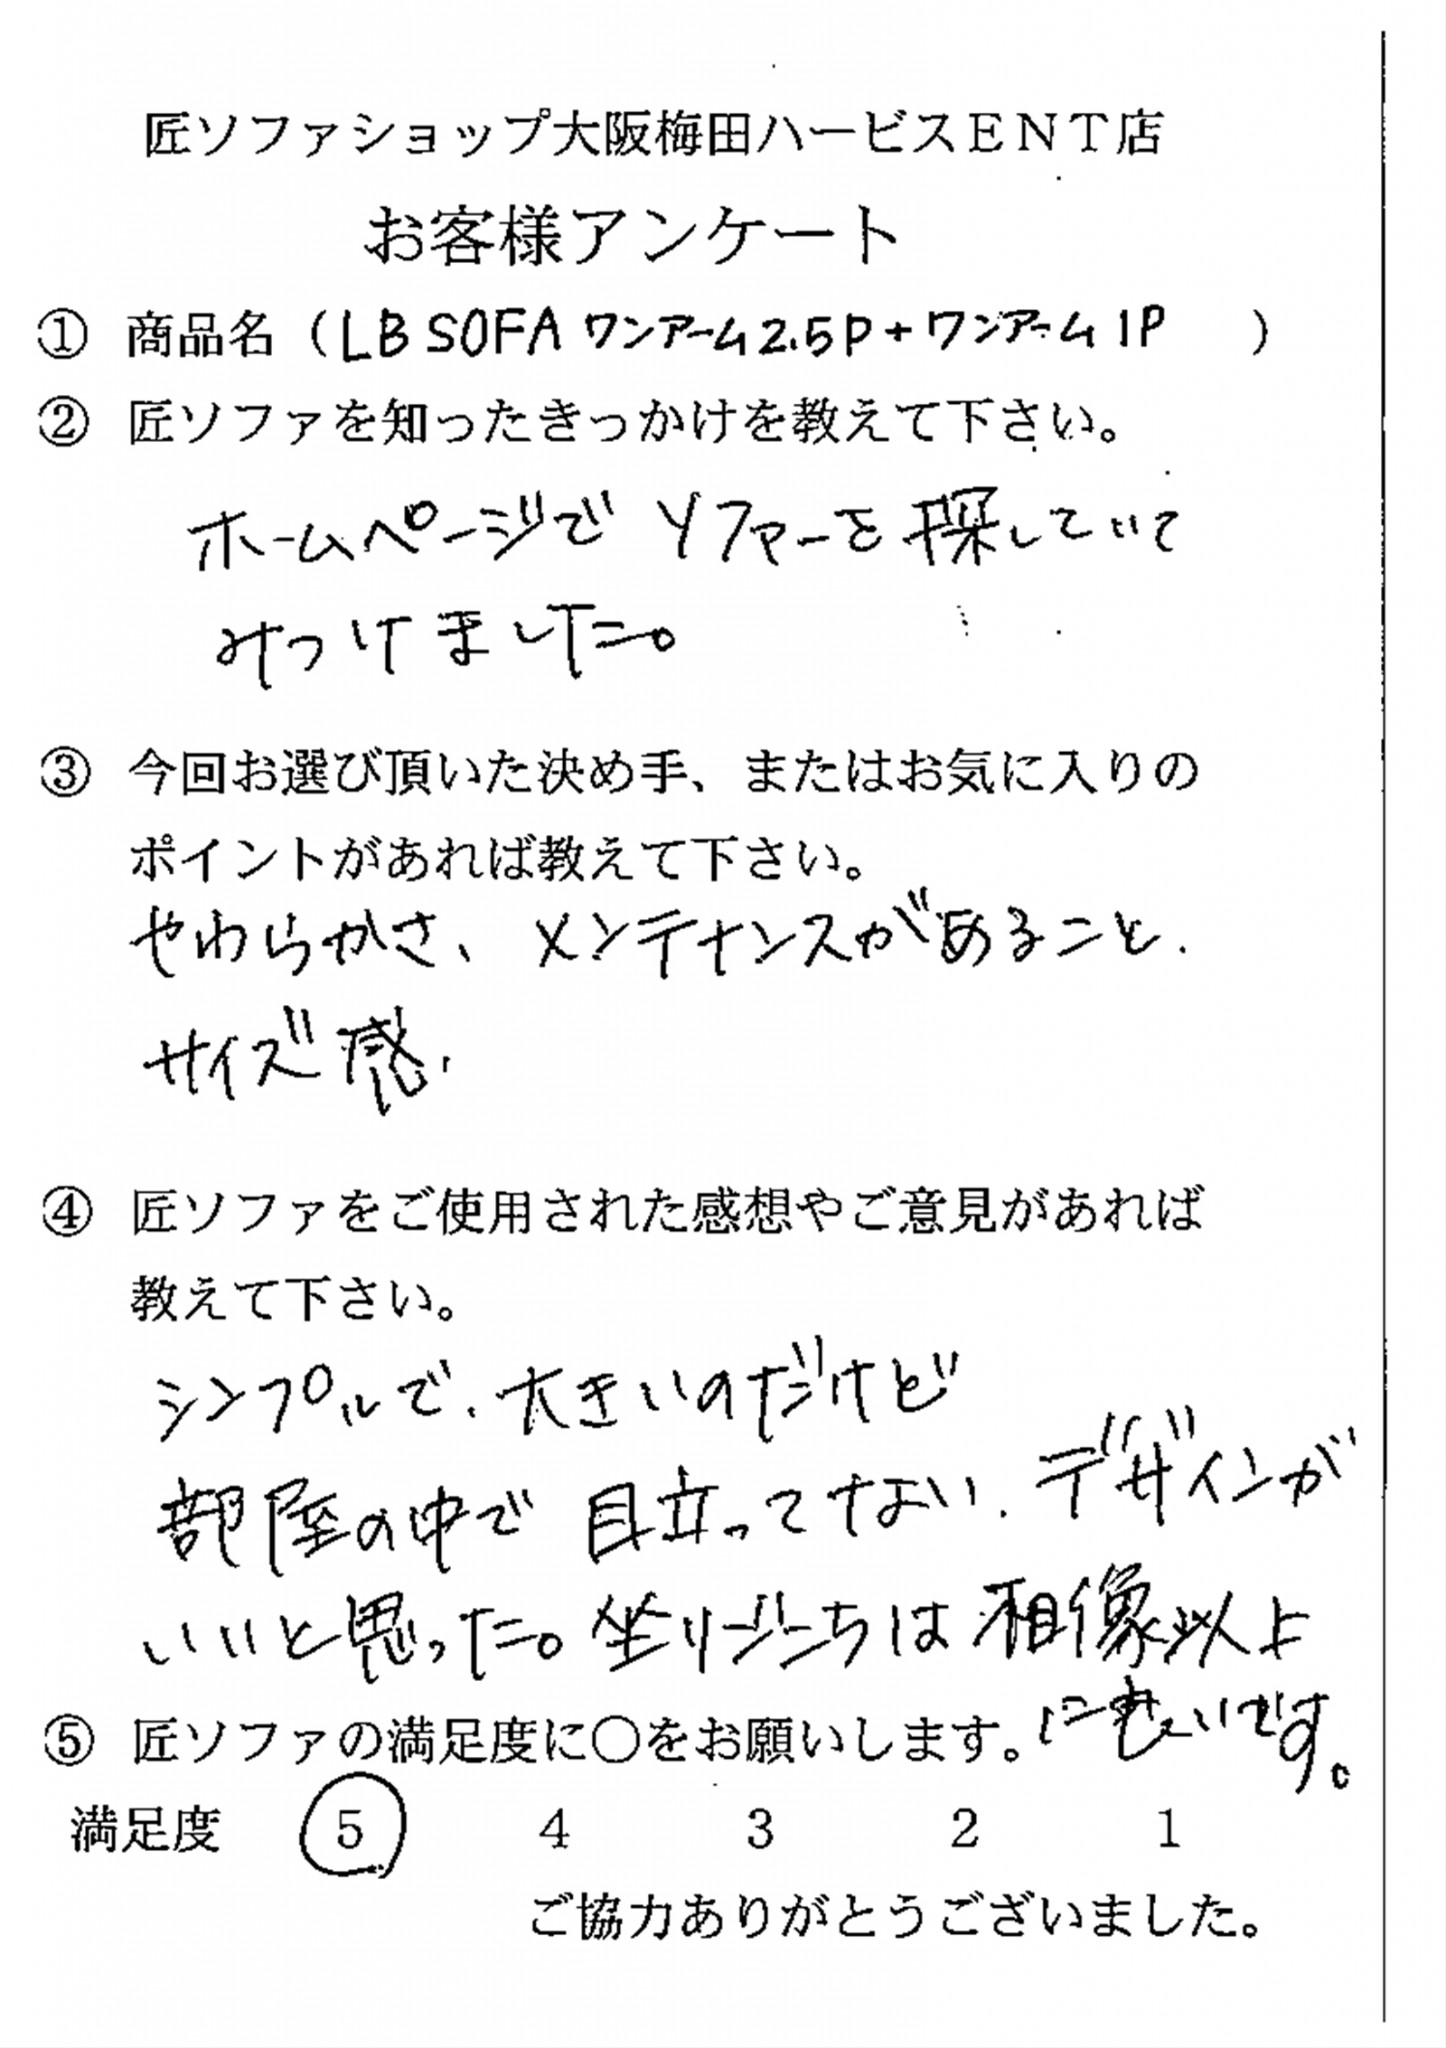 匠ソファショップ大阪梅田ハービスＥＮＴ店
お客様アンケート
① 商品名（LB SOFA ワンアーム2.5P+ワンアーム1P ）
② 匠ソファを知ったきっかけを教えて下さい。
ホームページでソファーを探していて
みつけました。
③ 今回お選び頂いた決め手、またはお気に入りの
ポイントがあれば教えて下さい。
やわらかさ、メンテナンスがあること、
サイズ感、
④ 匠ソファをご使用された感想やご意見があれば
教えて下さい。
シンプルで、大きいのだけど
部屋の中で目立ってない、デザインが
いいと思った。坐りごこちは想像以上
に良いです。
⑤ 匠ソファの満足度に○をお願いします。
満足度 5 4 3 2 1
ご協力ありがとうございました。